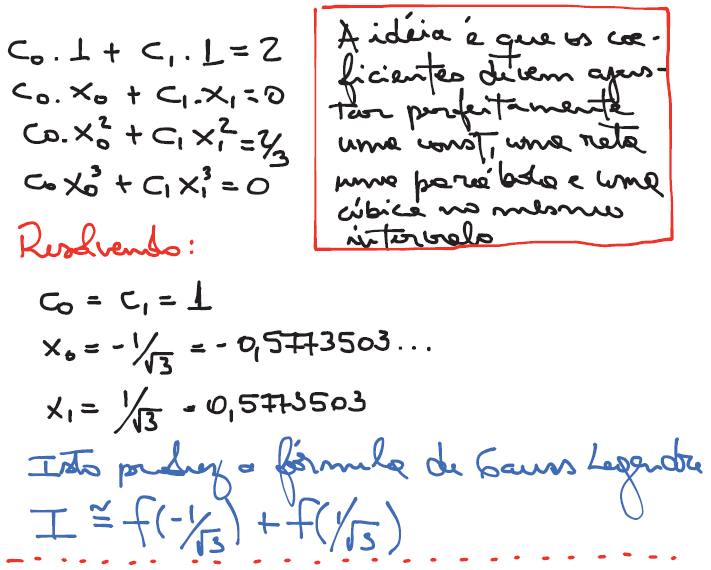 C₀.1 + C₁.1 = 2
C₀.X₀ + C₁.X₁ = 0
C₀.X₀² + C₁X₁² = 2/3
C₀X₀³ + C₁X₁³ = 0
A idéia é que os coe-
ficientes devem ajus-
tar perfeitamente
uma const, uma reta
uma parábola e uma
cúbica no mesmo
intervalo
Resolvendo:
C₀ = C₁ = 1
X₀ = -1/√3 = -0,5773503...
X₁ = 1/√3 = 0,5773503
Isto produz a fórmula de Gauss Legendre
I ≅ f(-1/√3) + f(1/√3)